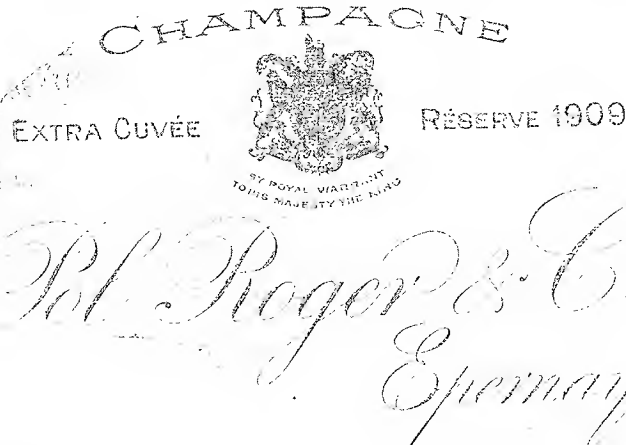 CHAMPAGNE
EXTRA CUVÉE
RÉSERVE 1909
BY ROYAL WARRANT
TO HIS MAJESTY THE KING
Pol Roger & C
Epernay